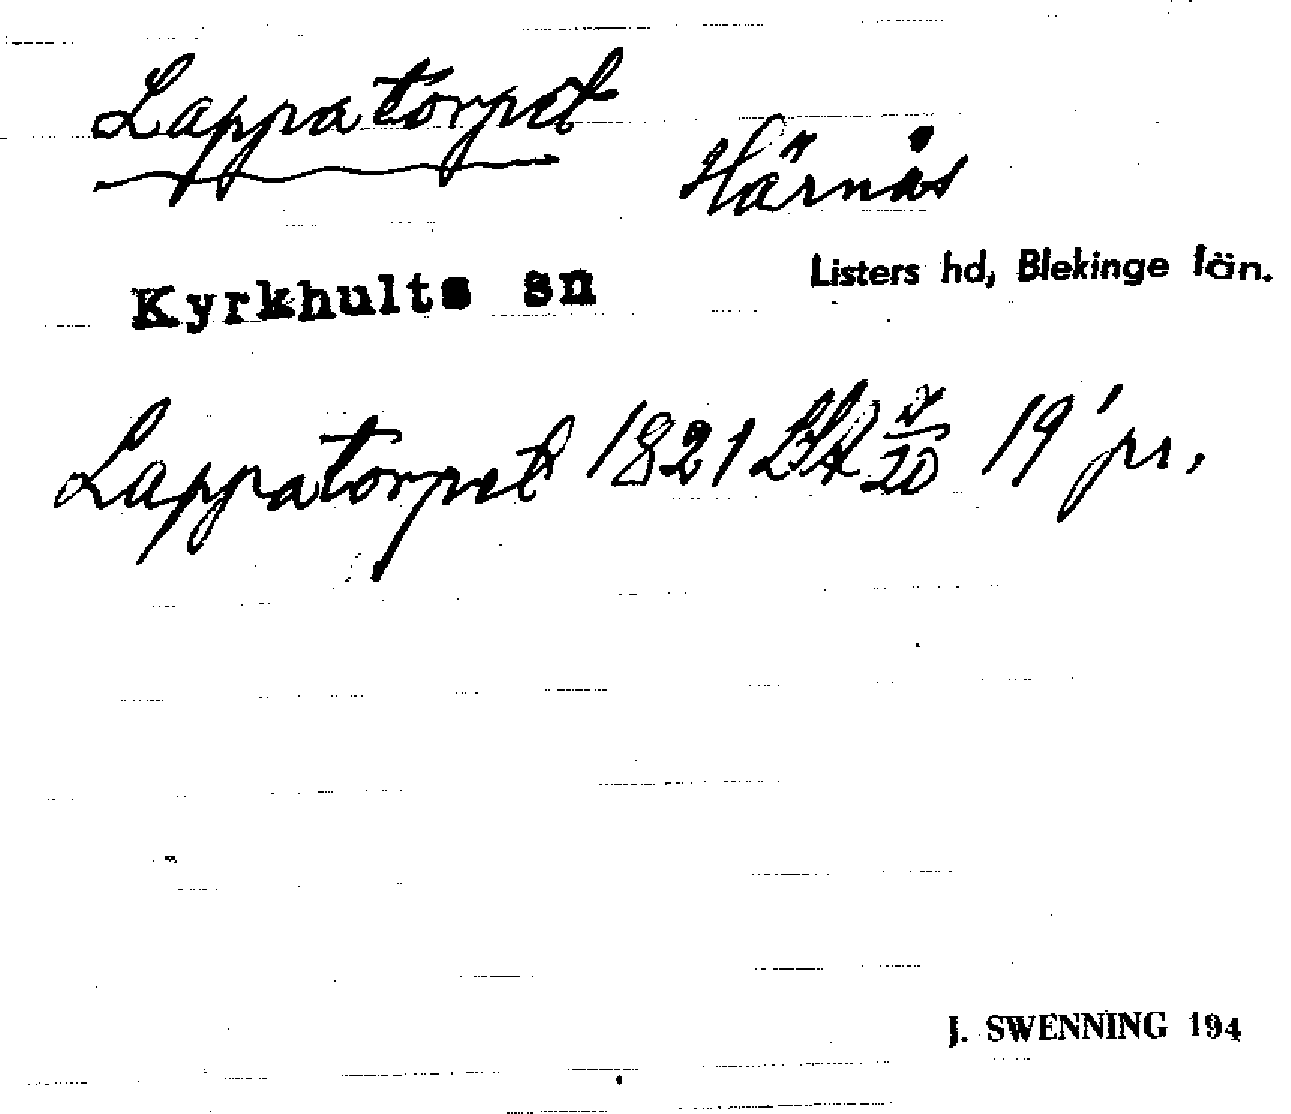 Lappatorpet
Härnäs
Kyrkhults sn
Listers hd, Blekinge län.
Lappatorpet 1821 19 pr.
J. SWENNING 194